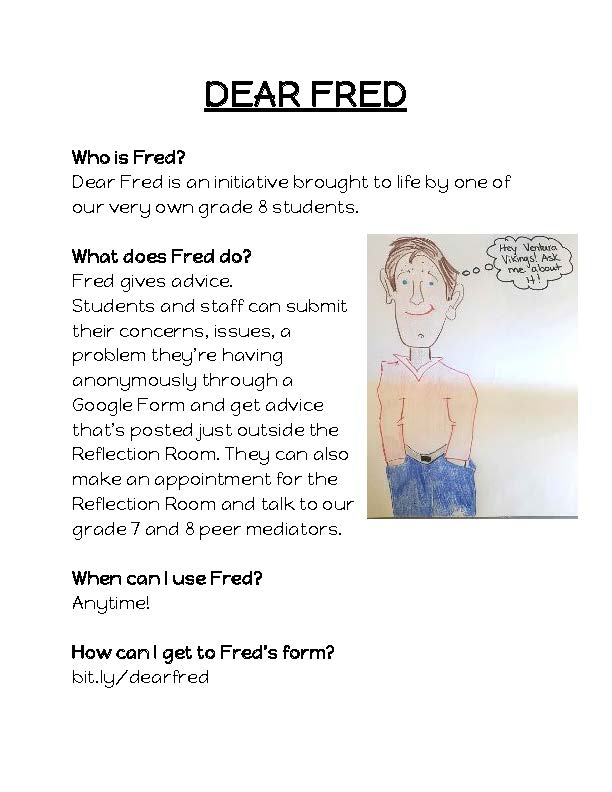 DEAR FRED
Who is Fred?
Dear Fred is an initiative brought to life by one of
our very own grade 8 students.
What does Fred do?
Fred gives advice.
Students and staff can submit
their concerns, issues, a
problem they're having
anonymously through a
Google Form and get advice
that's posted just outside the
Reflection Room. They can also
make an appointment for the
Reflection Room and talk to our
grade 7 and 8 peer mediators.
Hey Ventura
Vikings! Ask
me about
it!
When can I use Fred?
Anytime!
How can I get to Fred's form?
bit.ly/dearfred